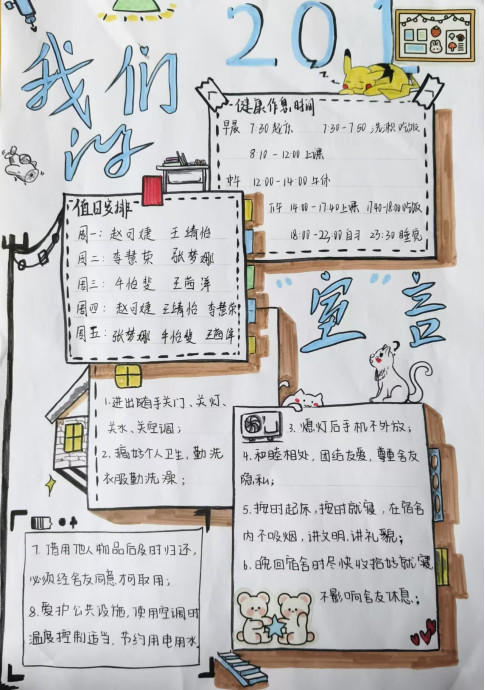 我们
201
健康作息时间
早晨 7:30起床 7:30-7:50洗漱吃饭
8:10-12:00上课
中午 12:00-14:00午休
下午 14:00-17:40上课 17:40-18:00吃饭
18:00-22:00自习 23:30睡觉
值日安排
周一:赵可婕 王绮怡
周二:李慧荣 张梦娜
周三:牛怡斐 王茜洋
周四:赵可婕 王绮怡 李慧荣
周五:张梦娜 牛怡斐 王茜洋
"宣言
1.进出随手关门、关灯、
关水、关空调;
2.搞好个人卫生,勤洗
衣服勤洗澡;
3.熄灯后手机不外放;
4.和睦相处,团结友爱,尊重舍友
隐私;
5.按时起床,按时就寝,在宿舍
内不吸烟,讲文明,讲礼貌;
6.晚回宿舍时尽快收拾好就寝
不影响舍友休息;
7.借用他人物品后及时归还,
必须经舍友同意才可取用;
8.爱护公共设施,使用空调时
温度控制适当,节约用电用水.